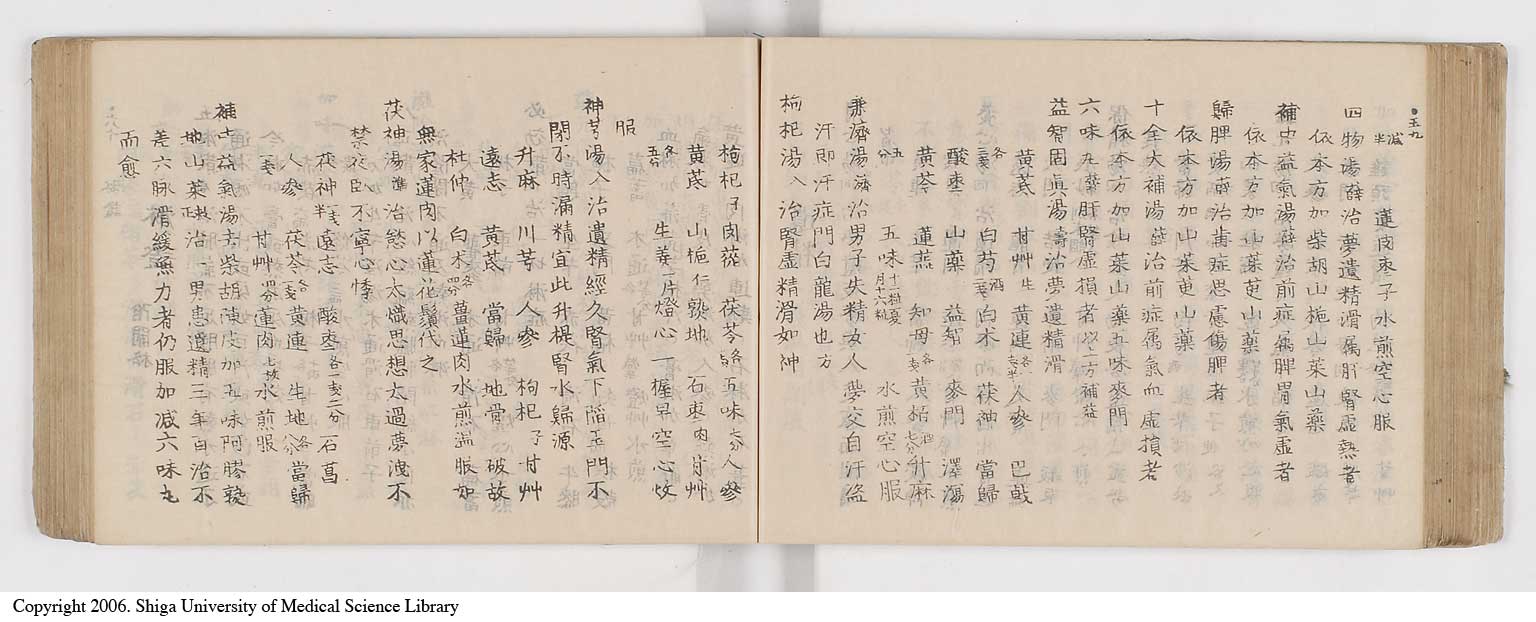 五九
減半 蓮肉棗子水煎空心服
四物湯薛治夢遺精滑属肝腎虚熱者
依本方加柴胡山梔山茱山藥
補中益氣湯薛治前症属脾胃氣虚者
依本方加山茱萸山藥
歸脾湯薛治前症思慮傷脾者
依本方加山茱萸山藥
十全大補湯薛治前症属氣血虚損者
依本方加山茱山藥五味麥門
六味丸薛肝腎虚損者以二方補益
益智固真湯壽治夢遺精滑
黄芪 甘艸生 黄連 人參 巴戟
各三戔 白芍酒二戔 白术 茯神 當歸
酸棗 山藥 益智 麥門 澤瀉
黄芩 蓮蕊 知母各 黄栢酒七分 升麻
五分 五味十一粒夏月十六粒 水煎空心服
兼濟湯濟治男子失精女人夢交自汗盗
汗即汗症門白龍湯也方
枸杞湯入治腎虚精滑如神
枸杞子肉蓯 茯苓各 五味七分 人參
黄芪 山梔仁 熟地 石棗肉 甘艸
各五 生姜一片燈心一握早空心
服
神芎湯入治遺精經久腎氣下陷玉門不
閉不時漏精宜此升提腎水歸源
升麻 川芎 人參 枸杞子 甘艸
遠志 黄芪 當歸 地骨 破故
杜仲 白术各四分 薑蓮肉水煎温服如
無家蓮肉以蓮花鬚代之
茯神湯準治慾心太熾思想太過夢洩不
禁夜臥不寧心悸
茯神一戔半 遠志 酸棗各一戔二分 石菖
人參 茯苓各一戔 黄連 生地各八分 當歸
一戔 甘艸四分 蓮肉七枚 水煎服
補中益氣湯去柴胡陳皮加五味阿膠熟
地山茱 治一男患遺精三年百治不
差六脉滑緩無力者仍服加减六味丸
而愈